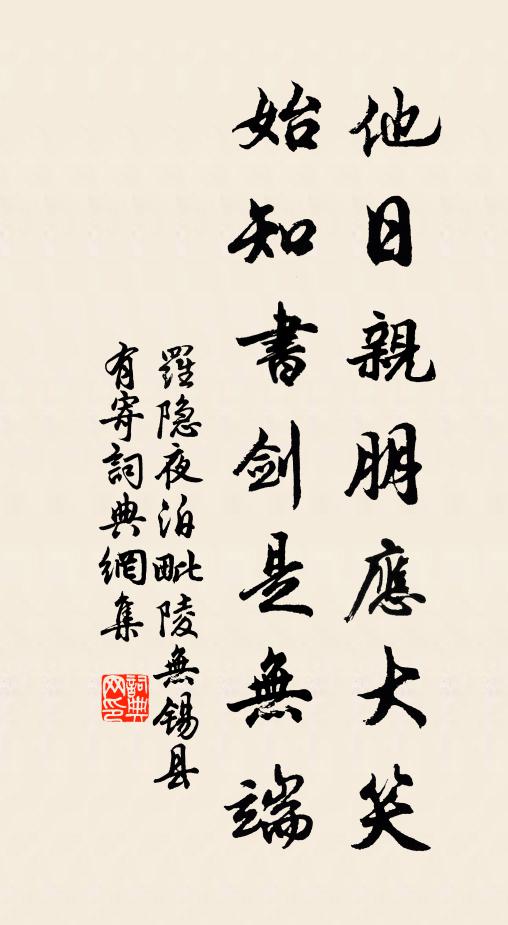 他日親朋應大笑
始知書劍是無端
羅隐夜泊毗陵無锡县
有寄詞典網集
詞典
网印